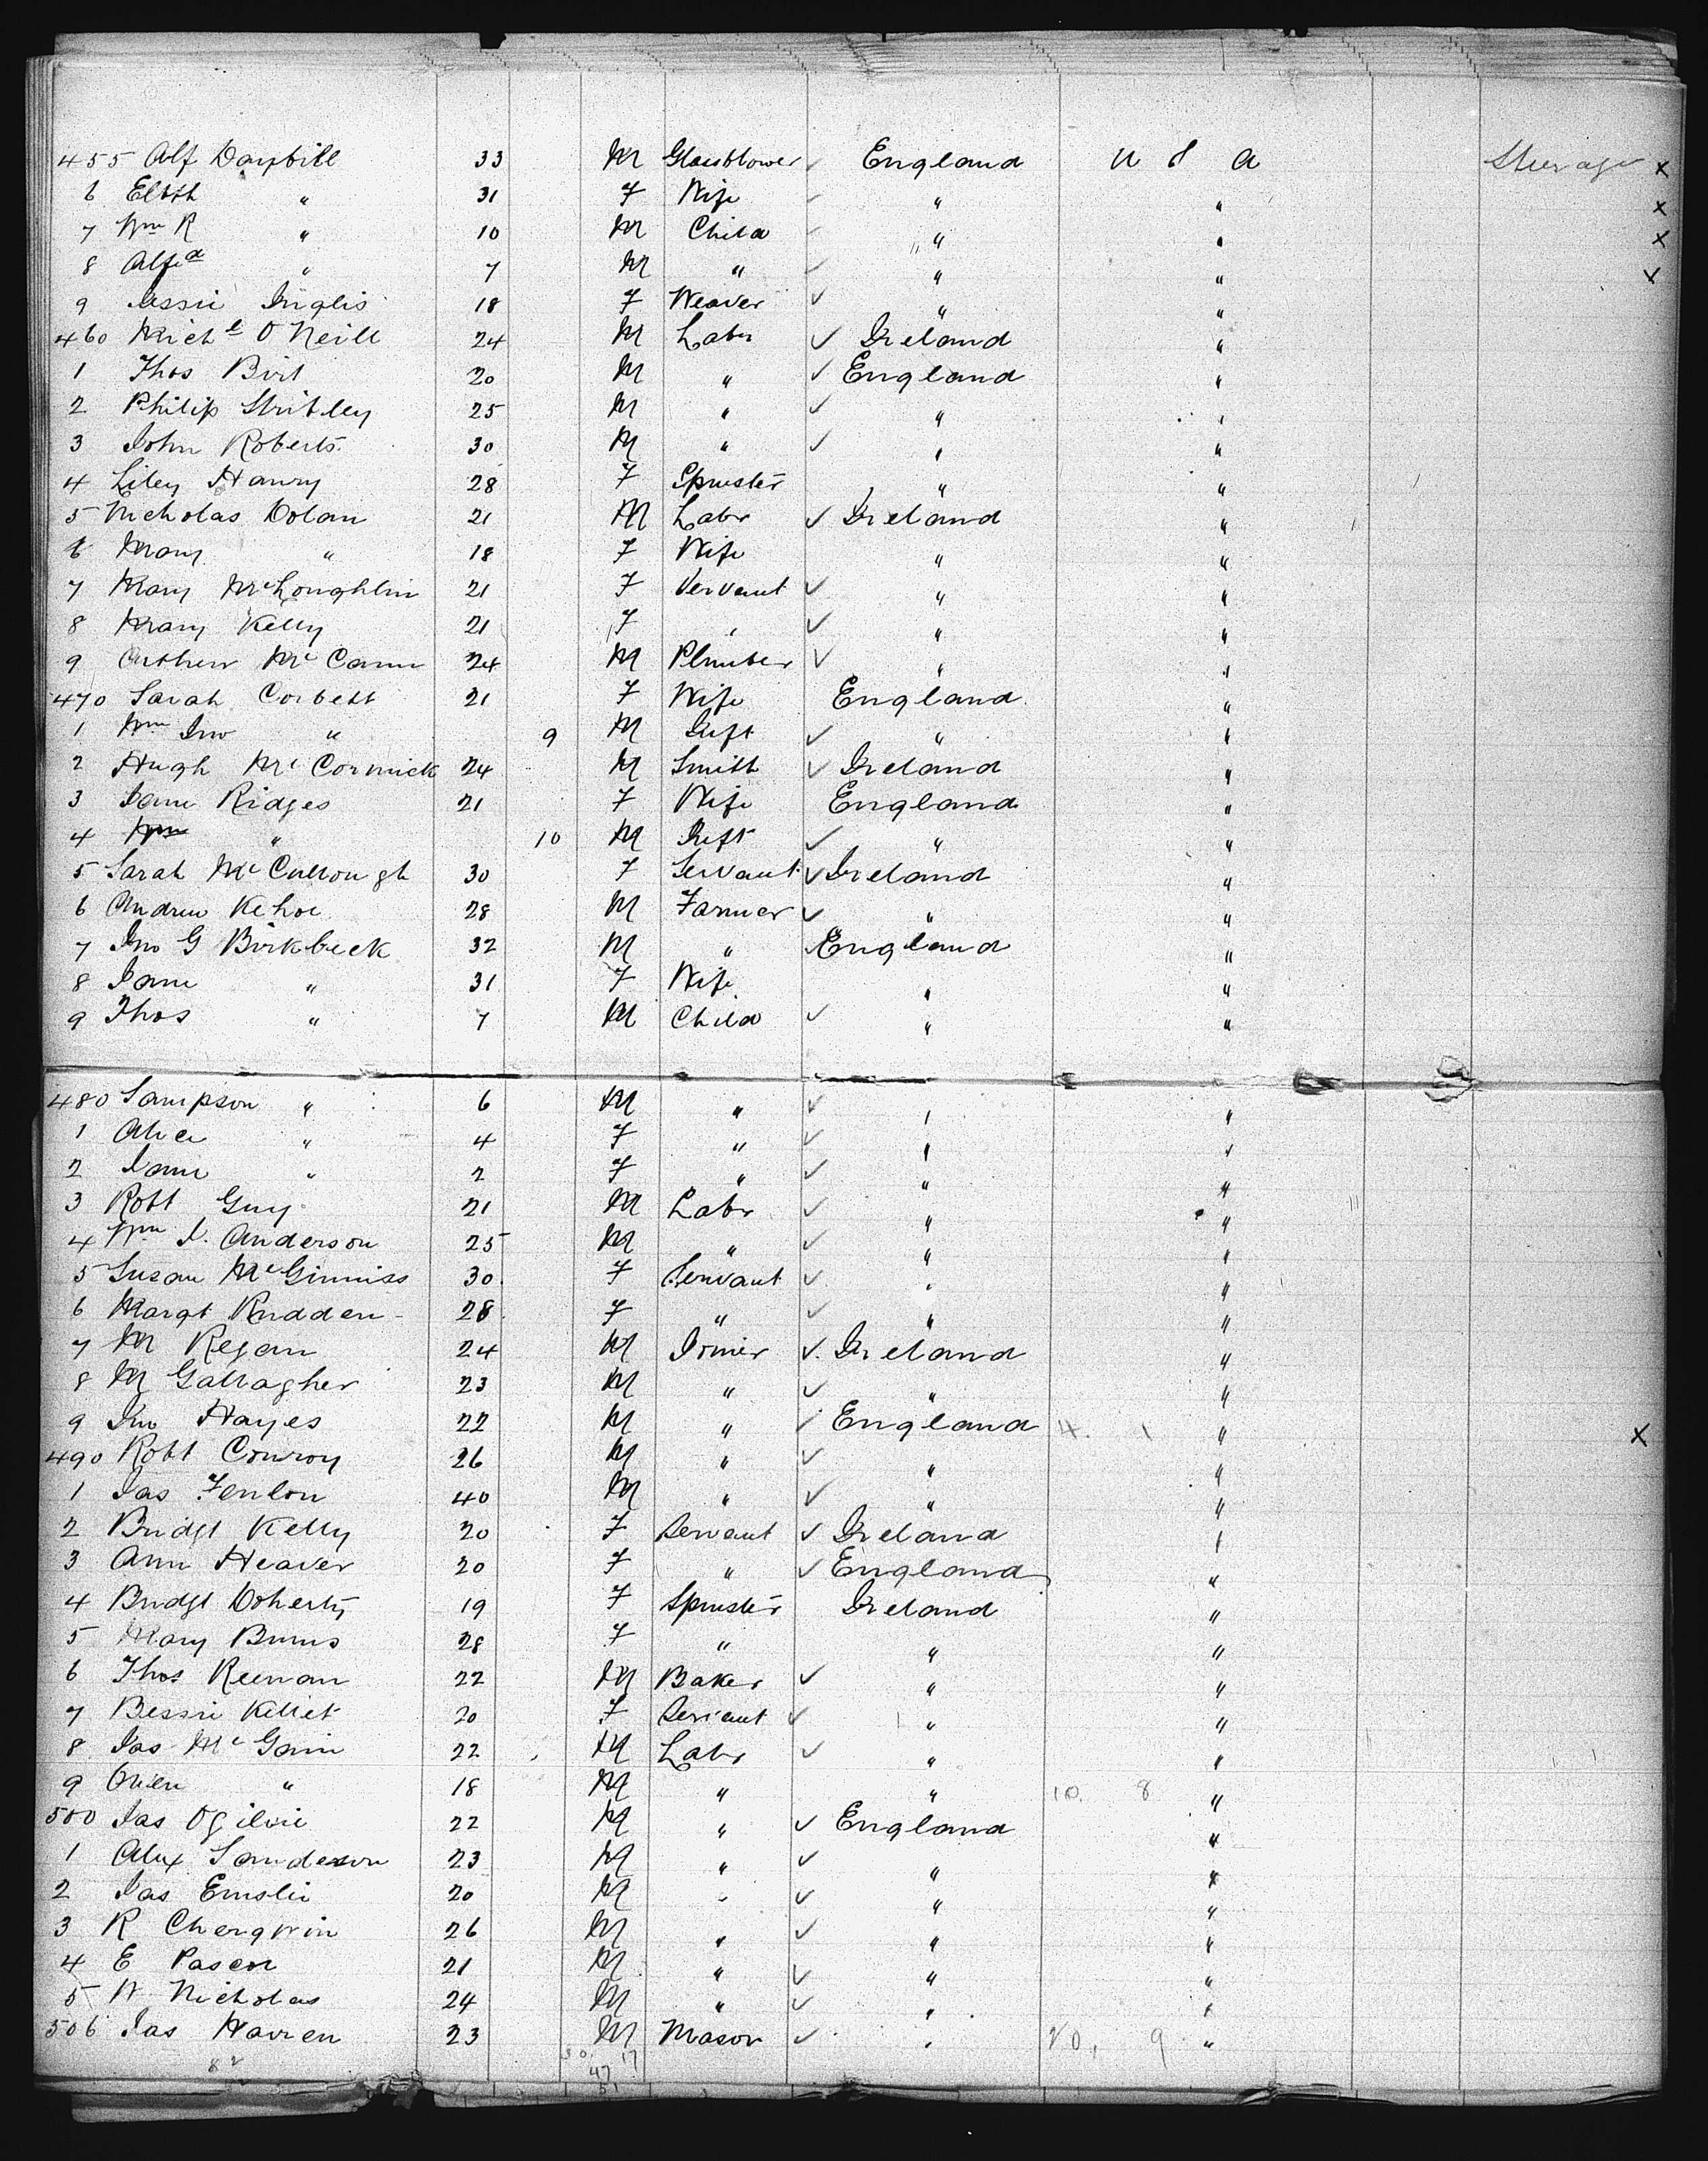 455 Alf Daybill 33 M Glassblower ✓ England U S A Steerage x
6 Elbth " 31 F Wife ✓ " " x
7 Wm R " 10 M Child ✓ " " x
8 Alfd " 7 M " ✓ " " x
9 Jessie Inglis 18 F Weaver ✓ " "
460 Michl O Neill 24 M Labr ✓ Ireland "
1 Thos Birt 20 M " ✓ England "
2 Philip Stribley 25 M " ✓ " "
3 John Roberts 30 M " ✓ " "
4 Liley Hanry 28 F Spinster " "
5 Nicholas Dolan 21 M Labr ✓ Ireland "
6 Mary " 18 F Wife " "
7 Mary McLoughlin 21 F Servant ✓ " "
8 Mary Kelly 21 F " ✓ " "
9 Arthur Mc Cann 24 M Plumber ✓ " "
470 Sarah Corbett 21 F Wife England "
1 Wm Jno " 9 M Inft ✓ " "
2 Hugh Mc Cormick 24 M Smith ✓ Ireland "
3 Jane Ridges 21 F Wife England "
4 Wm " 10 M Inft ✓ " "
5 Sarah McCullough 30 F Servant ✓ Ireland "
6 Andrew Kehoe 28 M Farmer ✓ " "
7 Jno G Birkbeck 32 M " England "
8 Jane " 31 F Wife " "
9 Thos " 7 M Child ✓ " "
480 Sampson " 6 M " ✓ " "
1 Alice " 4 F " ✓ " "
2 Jane " 2 F " ✓ " "
3 Robt Guy 21 M Labr ✓ " "
4 Wm J. Anderson 25 M " ✓ " "
5 Susan McGinniss 30 F Servant ✓ " "
6 Margt Rudden 28 F " ✓ " "
7 M Regan 24 M Joiner ✓ Ireland "
8 M Gallagher 23 M " ✓ " "
9 Jno Hayes 22 M " ✓ England 4. 1 " x
490 Robt Conroy 26 M " ✓ " "
1 Jas Fenlon 40 M " ✓ " "
2 Bridgt Kelly 20 F Servant ✓ Ireland "
3 Ann Heaver 20 F " ✓ England "
4 Bridgt Doherty 19 F Spinster Ireland "
5 Mary Burns 28 F " " "
6 Thos Keenan 22 M Baker ✓ " "
7 Bessie Kellet 20 F Servant ✓ " "
8 Jas Mc Gann 22 M Labr ✓ " "
9 Owen " 18 M " " 10. 8 "
500 Jas Ogilvie 22 M " ✓ England "
1 Alex Sanderson 23 M " ✓ " "
2 Jas Emslie 20 M " ✓ " "
3 R Chergwin 26 M " ✓ " "
4 E Pascoe 21 M " ✓ " "
5 W Nicholas 24 M " ✓ " "
506 Jas Warren 23 M Mason ✓ " 20. 9 "
82 30 17
47